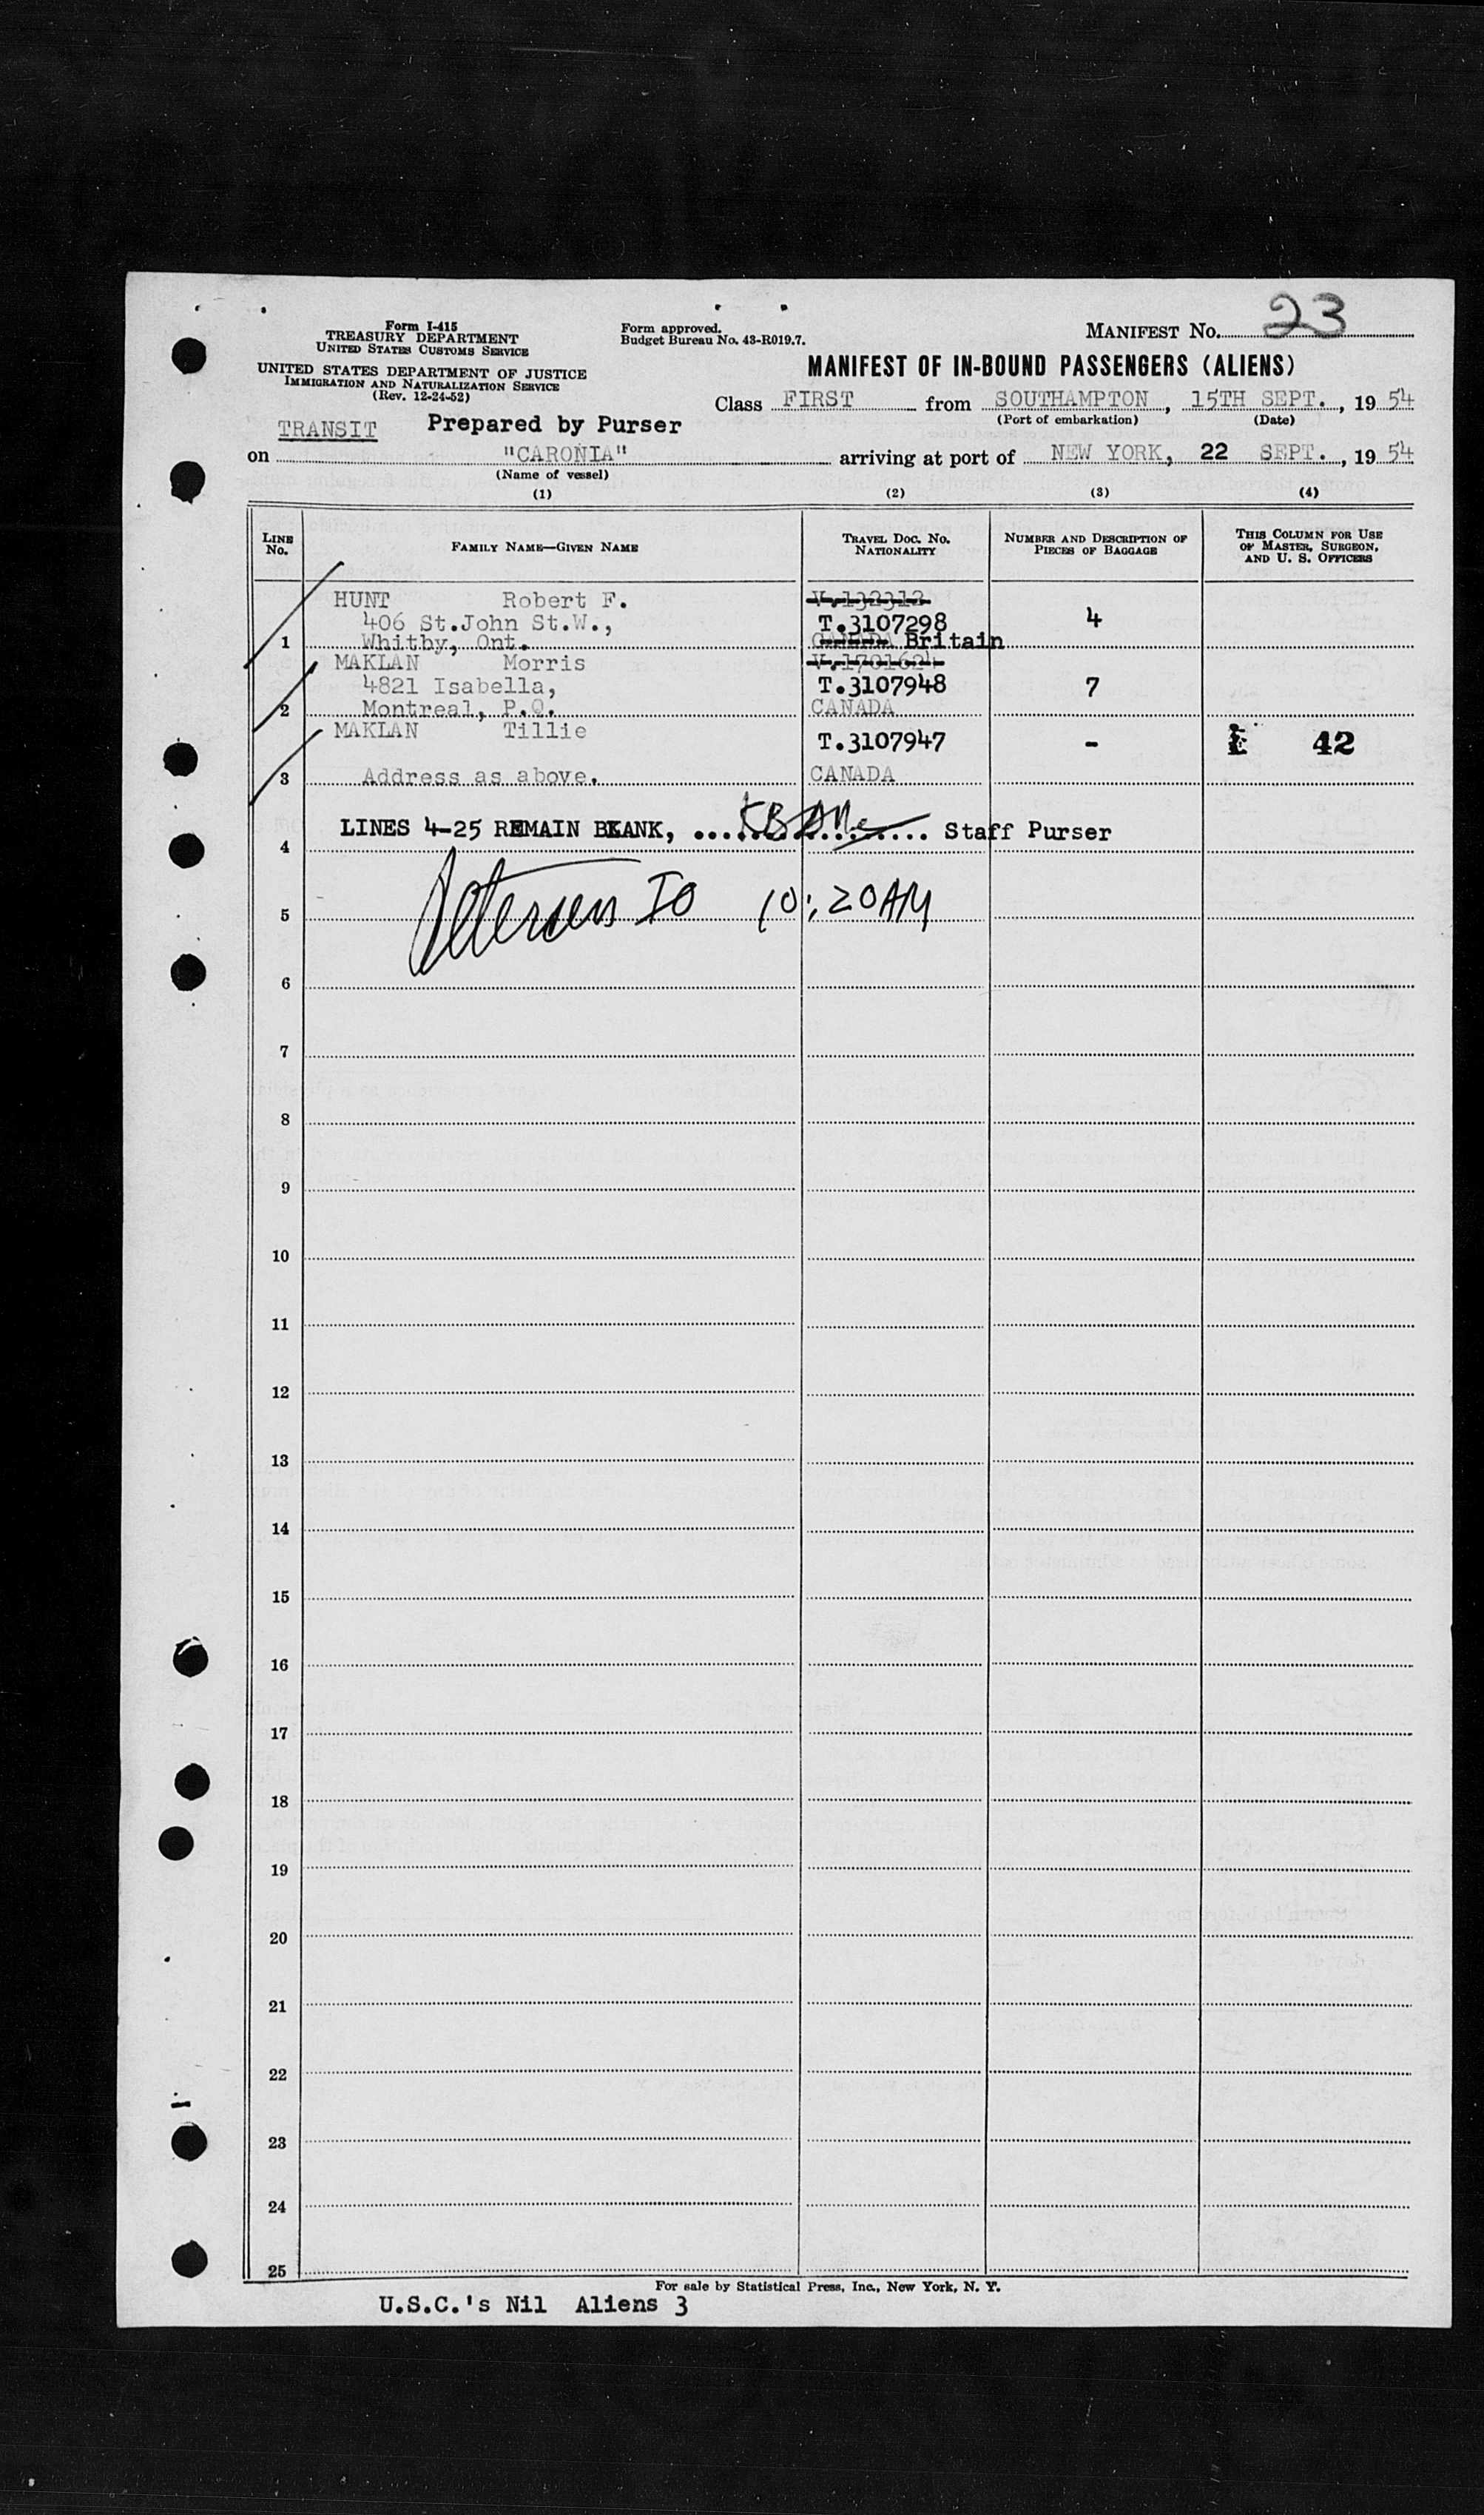 Form I-415
TREASURY DEPARTMENT
UNITED STATES CUSTOMS SERVICE
UNITED STATES DEPARTMENT OF JUSTICE
IMMIGRATION AND NATURALIZATION SERVICE
(Rev. 12-24-52)
Form approved.
Budget Bureau No. 43-R019.7.
MANIFEST No. 23
MANIFEST OF IN-BOUND PASSENGERS (ALIENS)
Class FIRST from SOUTHAMPTON, 15TH SEPT., 1954
(Port of embarkation) (Date)
TRANSIT Prepared by Purser
on "CARONIA" arriving at port of NEW YORK, 22 SEPT., 1954
(Name of vessel)
(1) (2) (3) (4)
LINE No. FAMILY NAME—GIVEN NAME TRAVEL DOC. NO. NATIONALITY NUMBER AND DESCRIPTION OF PIECES OF BAGGAGE THIS COLUMN FOR USE OF MASTER, SURGEON, AND U. S. OFFICERS
HUNT Robert F. V.132312
406 St.John St.W., T.3107298 4
1 Whitby, Ont. CANADA Britain
MAKLAN Morris V.1701624
4821 Isabella, T.3107948 7
2 Montreal, P.Q. CANADA
MAKLAN Tillie T.3107947 - 42
3 Address as above. CANADA
LINES 4-25 REMAIN BLANK, Staff Purser
4
Petersen IO 10:20AM
5
6
7
8
9
10
11
12
13
14
15
16
17
18
19
20
21
22
23
24
25
For sale by Statistical Press, Inc., New York, N. Y.
U.S.C.'s Nil Aliens 3